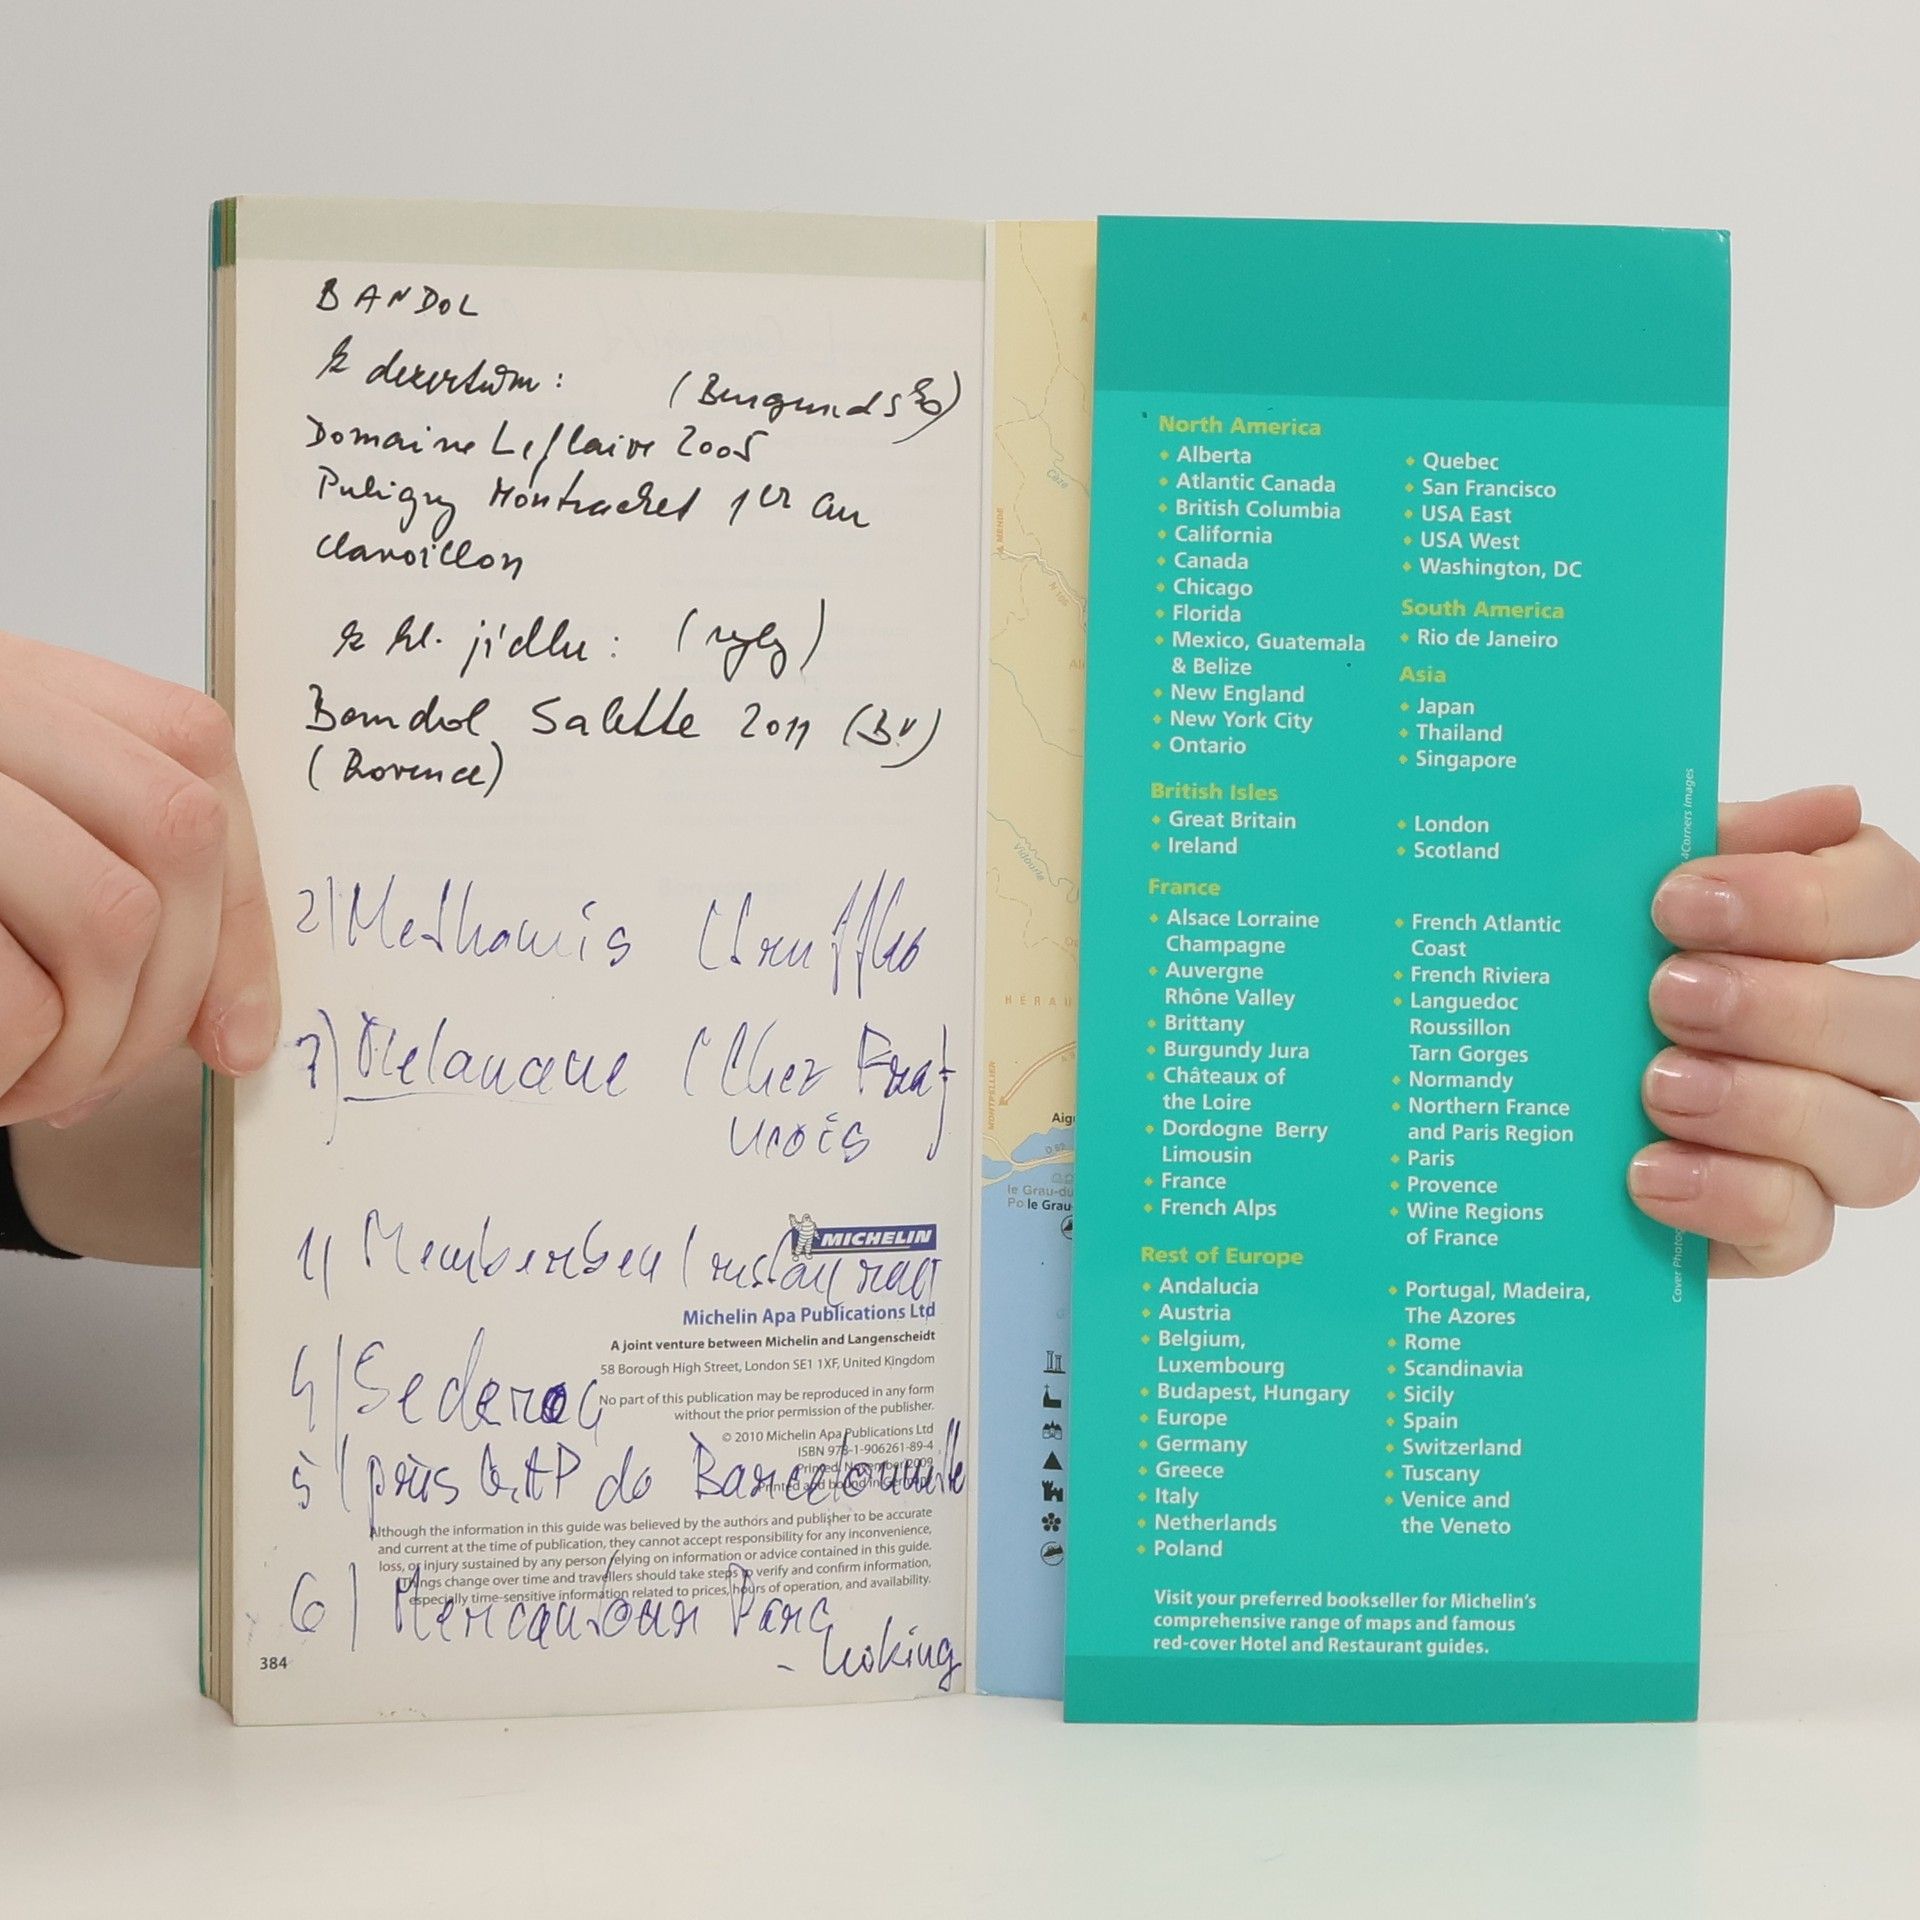 BANDOL
k desertům : (Burgundsko)
Domaine Leflaive 2005
Puligny Montrachet 1er cru
Clavoillon
k hl. jídlu : (ryby)
Bandol Salette 2011 (BV)
(Provence)
2) Methamis (truffles
7) Melanane (Chez Fran-
cois
1)
MICHELIN
Michelin Apa Publications Ltd
A joint venture between Michelin and Langenscheidt
58 Borough High Street, London SE1 1XF, United Kingdom
4) Sederoc
No part of this publication may be reproduced in any form
without the prior permission of the publisher.
© 2010 Michelin Apa Publications Ltd
ISBN 978-1-906261-89-4
Printed November 2009
Printed and bound in Germany
5) près GAP do Barcelonnette
Although the information in this guide was believed by the authors and publisher to be accurate
and current at the time of publication, they cannot accept responsibility for any inconvenience,
loss, or injury sustained by any person relying on information or advice contained in this guide.
Things change over time and travellers should take steps to verify and confirm information,
especially time-sensitive information related to prices, hours of operation, and availability.
6) Mercantour Parc
384
A MENDE
Cèze
N 106
Vidourle
HÉRAU
MONTPELLIER
Aig
D 62
le Grau-du
Po le Grau-
North America
Alberta
Atlantic Canada
British Columbia
California
Canada
Chicago
Florida
Mexico, Guatemala
& Belize
New England
New York City
Ontario
Quebec
San Francisco
USA East
USA West
Washington, DC
South America
Rio de Janeiro
Asia
Japan
Thailand
Singapore
British Isles
Great Britain
Ireland
London
Scotland
France
Alsace Lorraine
Champagne
Auvergne
Rhône Valley
Brittany
Burgundy Jura
Châteaux of
the Loire
Dordogne Berry
Limousin
France
French Alps
French Atlantic
Coast
French Riviera
Languedoc
Roussillon
Tarn Gorges
Normandy
Northern France
and Paris Region
Paris
Provence
Wine Regions
of France
Rest of Europe
Andalucia
Austria
Belgium,
Luxembourg
Budapest, Hungary
Europe
Germany
Greece
Italy
Netherlands
Poland
Portugal, Madeira,
The Azores
Rome
Scandinavia
Sicily
Spain
Switzerland
Tuscany
Venice and
the Veneto
Visit your preferred bookseller for Michelin's
comprehensive range of maps and famous
red-cover Hotel and Restaurant guides.
4Corners Images
Cover Photog